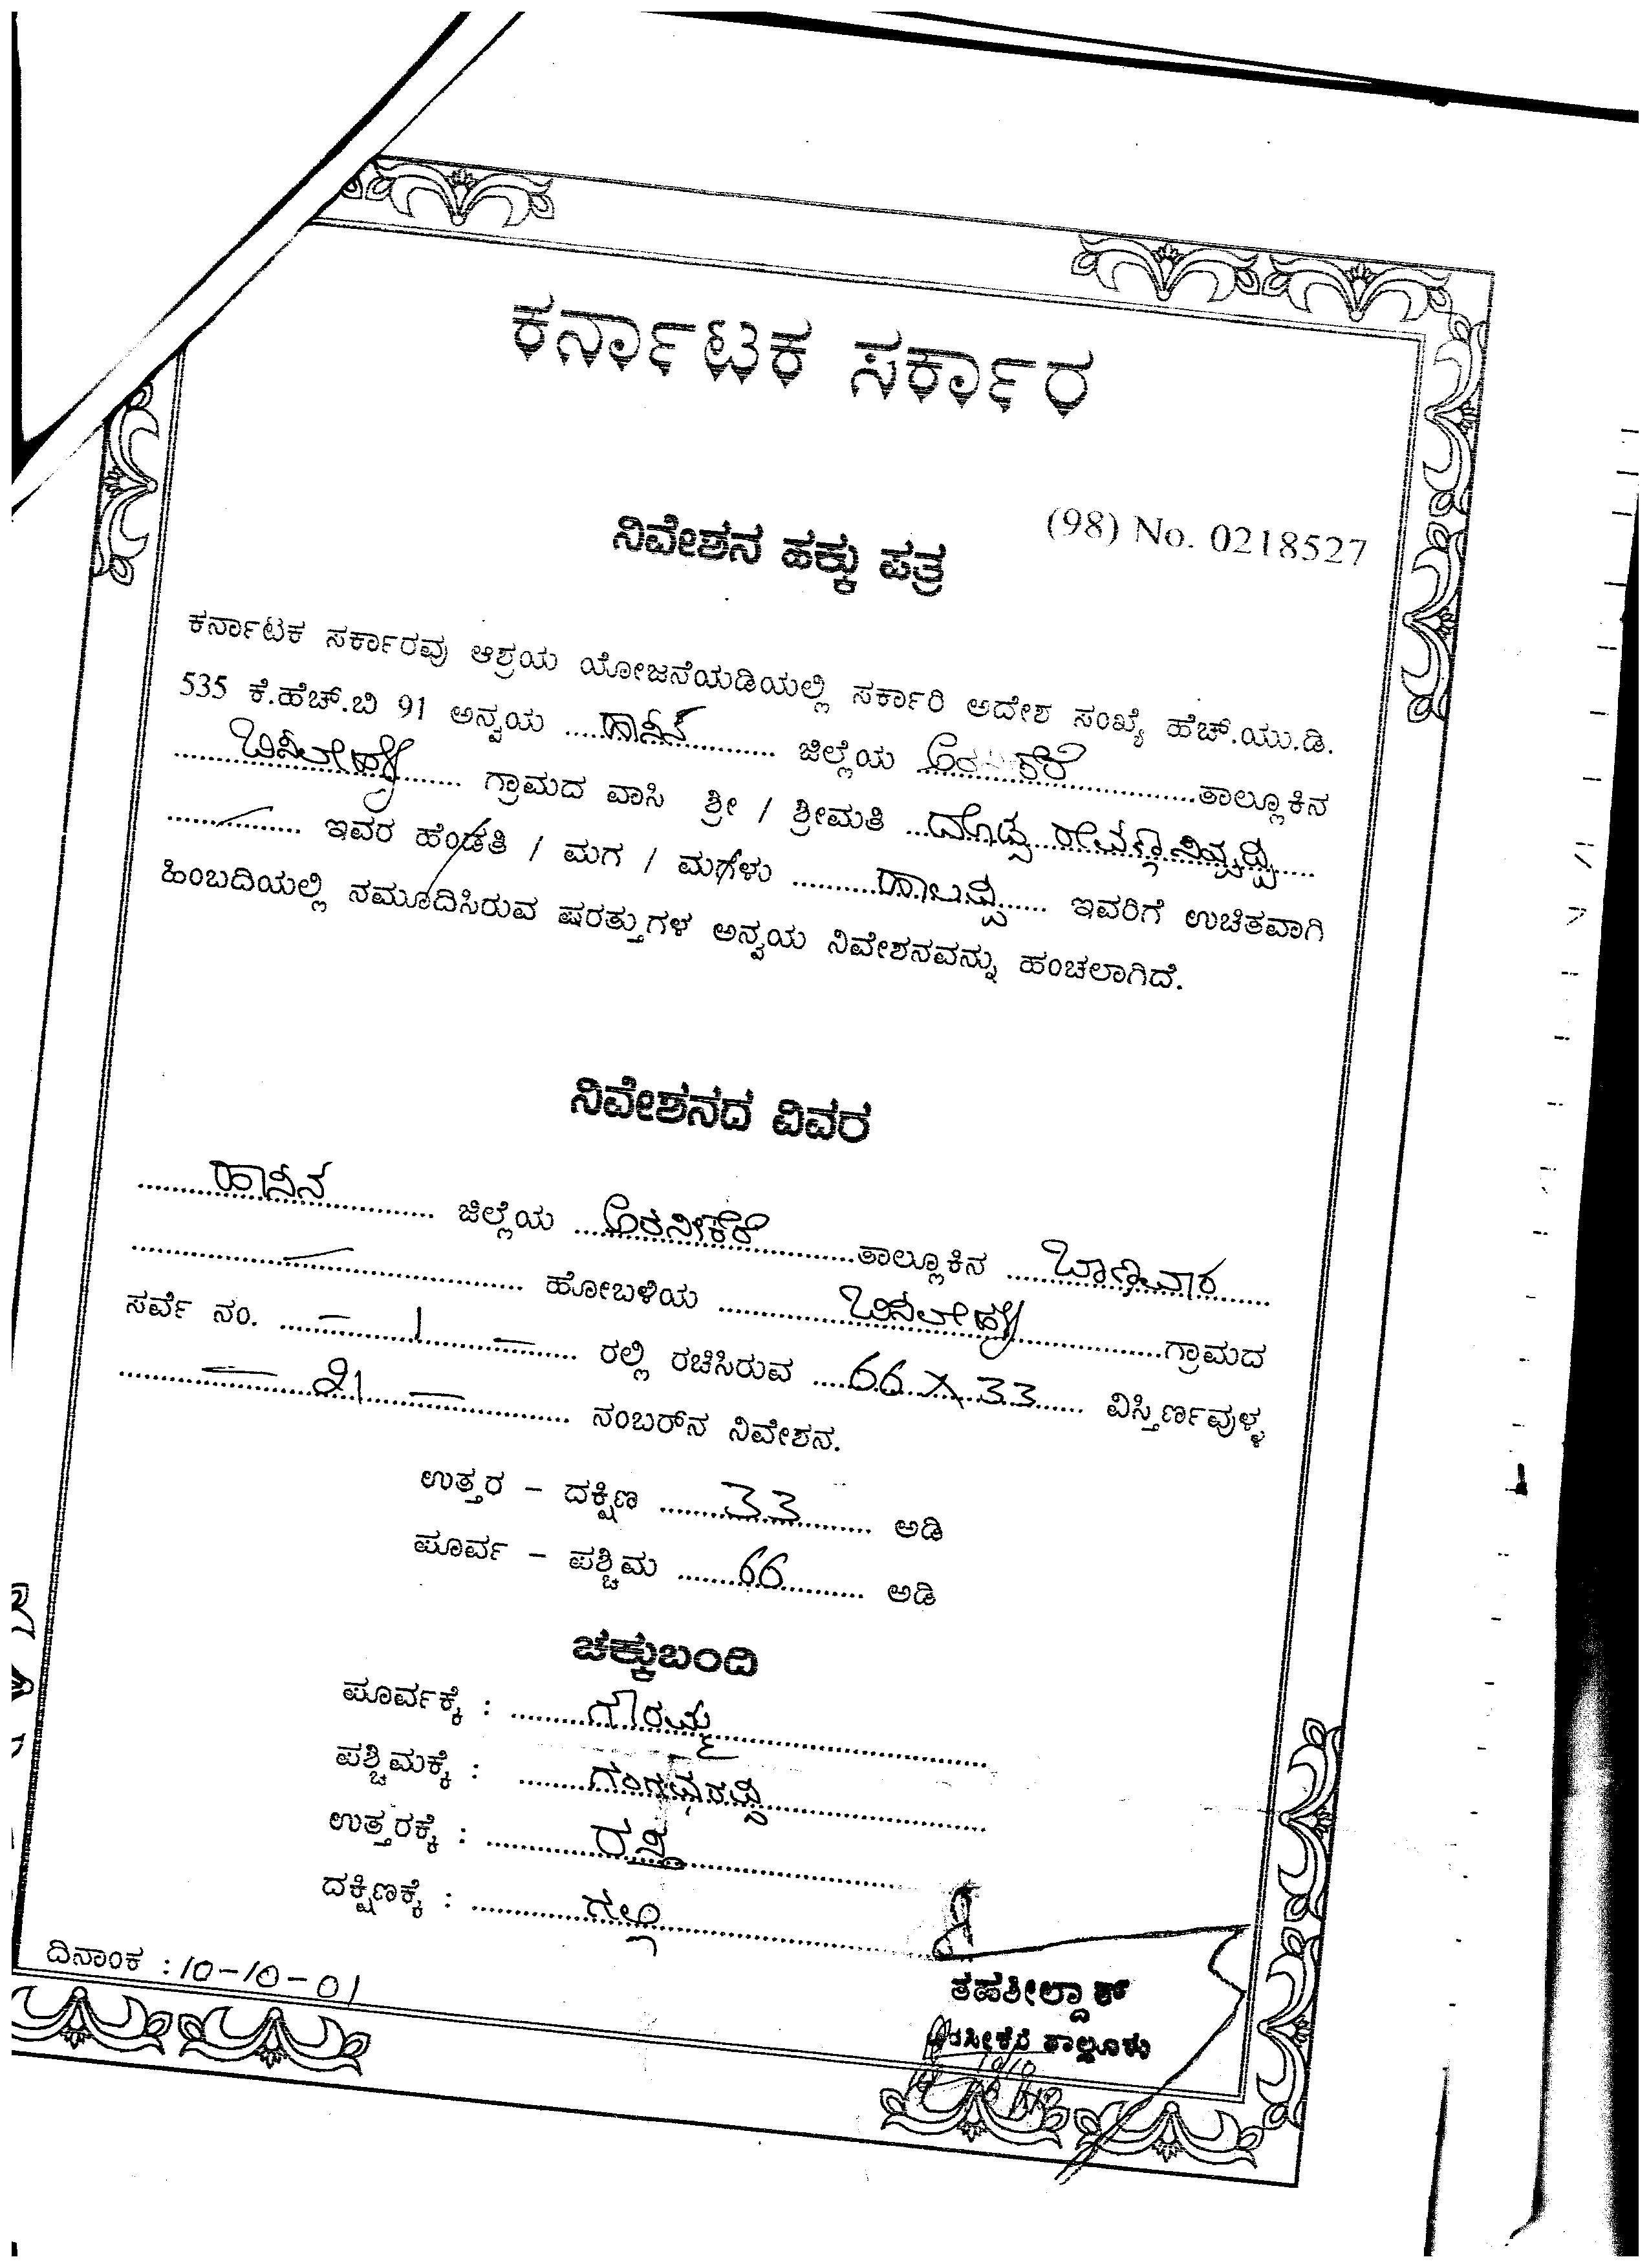 ಕರ್ನಾಟಕ ಸರ್ಕಾರ
(98) No. 0218527
ನಿವೇಶನ ಹಕ್ಕು ಪತ್ರ
ಕರ್ನಾಟಕ ಸರ್ಕಾರವು ಆಶ್ರಯ ಯೋಜನೆಯಡಿಯಲ್ಲಿ ಸರ್ಕಾರಿ ಆದೇಶ ಸಂಖ್ಯೆ ಹೆಚ್.ಯು.ಡಿ.
535 ಕೆ.ಹೆಚ್.ಬಿ 91 ಅನ್ವಯ ..... ಹಾಸನ ..... ಜಿಲ್ಲೆಯ ಅರಸೀಕೆರೆ ..... ತಾಲ್ಲೂಕಿನ
..... ..... ಗ್ರಾಮದ ವಾಸಿ ಶ್ರೀ / ಶ್ರೀಮತಿ ... ದೊಡ್ಡ .....
..... ಇವರ ಹೆಂಡತಿ / ಮಗ / ಮಗಳು ..... ಹಾಲಪ್ಪ ..... ಇವರಿಗೆ ಉಚಿತವಾಗಿ
ಹಿಂಬದಿಯಲ್ಲಿ ನಮೂದಿಸಿರುವ ಷರತ್ತುಗಳ ಅನ್ವಯ ನಿವೇಶನವನ್ನು ಹಂಚಲಾಗಿದೆ.
ನಿವೇಶನದ ವಿವರ
..... ಹಾಸನ ..... ಜಿಲ್ಲೆಯ ... ಅರಸೀಕೆರೆ ..... ತಾಲ್ಲೂಕಿನ ... ಬಾಣಾವಾರ .....
..... ಹೋಬಳಿಯ ..... ..... ಗ್ರಾಮದ
ಸರ್ವೆ ನಂ. ..... – 1 – ..... ರಲ್ಲಿ ರಚಿಸಿರುವ .... 66 X 33 ..... ವಿಸ್ತಿರ್ಣವುಳ್ಳ
..... – 21 – ..... ನಂಬರ್‌ನ ನಿವೇಶನ.
ಉತ್ತರ – ದಕ್ಷಿಣ ..... 33 ..... ಅಡಿ
ಪೂರ್ವ – ಪಶ್ಚಿಮ ..... 66 ..... ಅಡಿ
ಚಕ್ಕುಬಂದಿ
ಪೂರ್ವಕ್ಕೆ : ..... ಗೌರಮ್ಮ .....
ಪಶ್ಚಿಮಕ್ಕೆ : ..... ಗಂಗಾಧರಪ್ಪ .....
ಉತ್ತರಕ್ಕೆ : ..... ರಸ್ತೆ .....
ದಕ್ಷಿಣಕ್ಕೆ : ..... ಗಲ್ಲಿ .....
ದಿನಾಂಕ : 10-10-01
ತಹಶೀಲ್ದಾರ್
ಅರಸೀಕೆರೆ ತಾಲ್ಲೂಕು